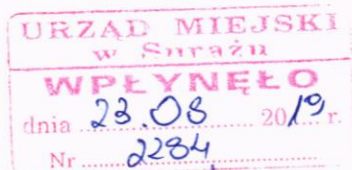 URZĄD MIEJSKI
w Surażu
WPŁYNĘŁO
dnia 23.08 2019 r.
Nr 2284